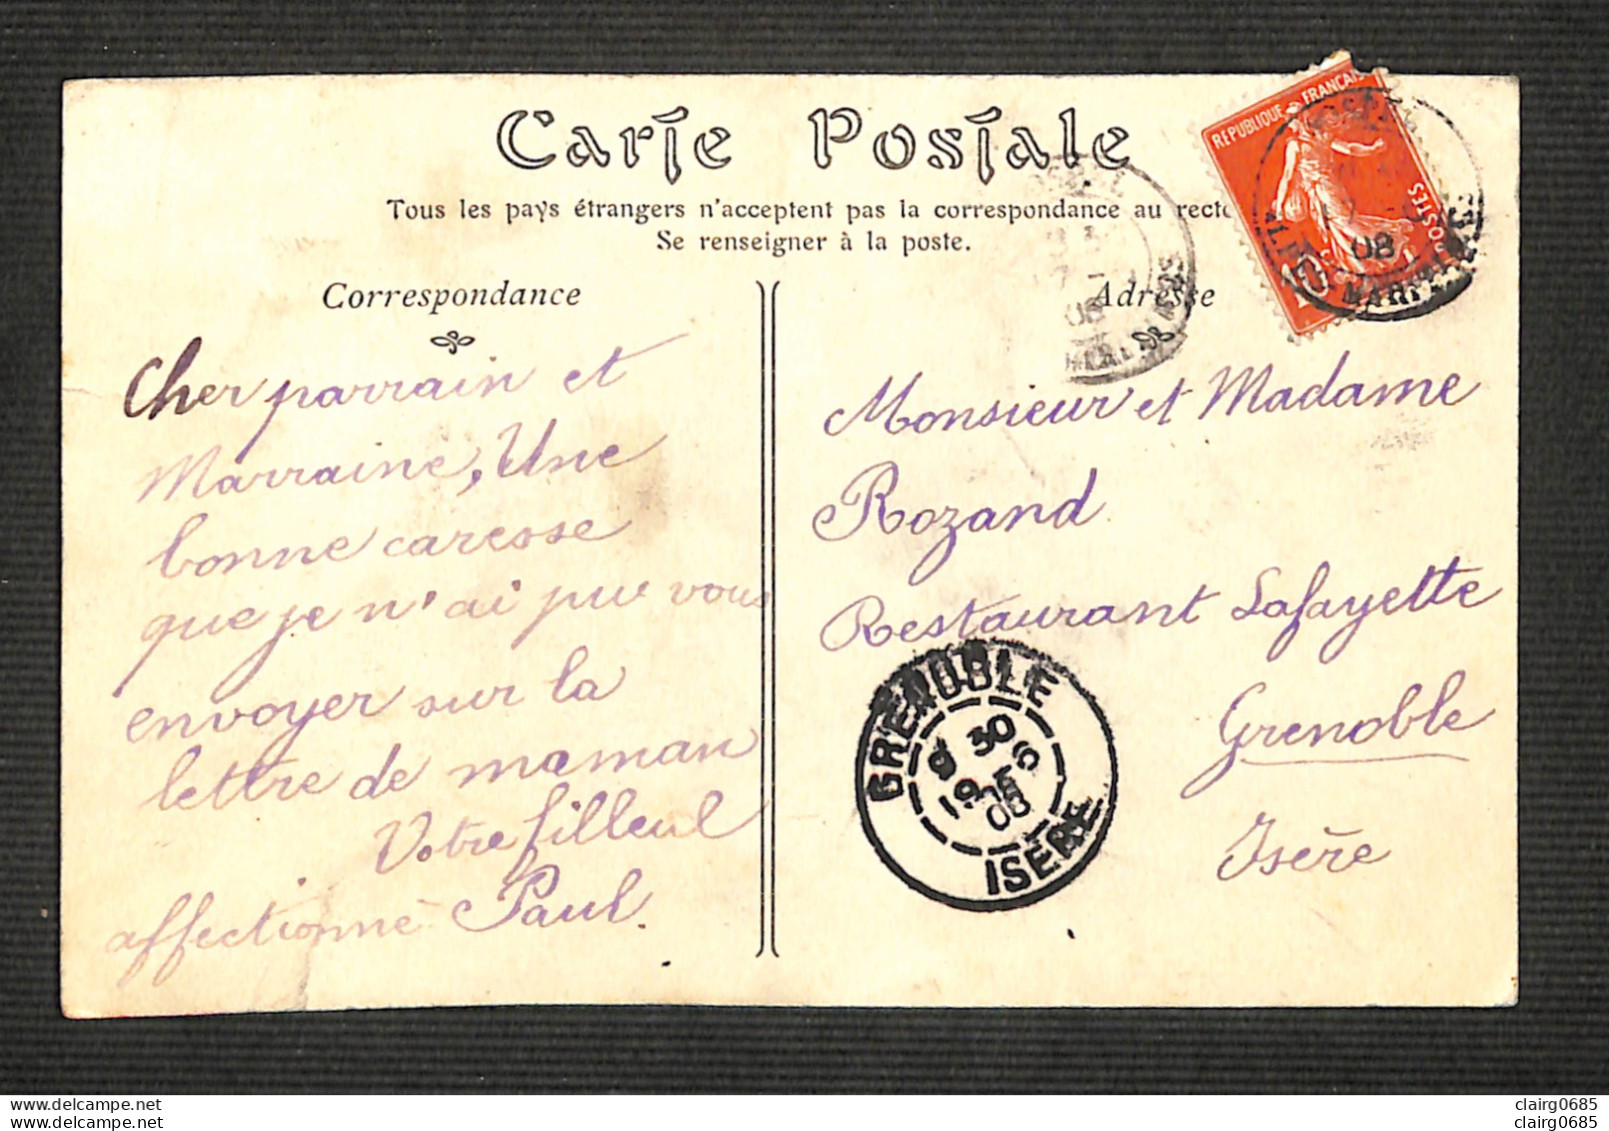 Carte Postale
Tous les pays étrangers n'acceptent pas la correspondance au recto
Se renseigner à la poste.
Correspondance
Cher parrain et
Marraine, Une
bonne caresse
que je n'ai pu vous
envoyer sur la
lettre de maman
Votre filleul
affectionné Paul.
Adresse
Monsieur et Madame
Rozand
Restaurant Lafayette
Grenoble
Isère
REPUBLIQUE FRANÇAISE
POSTES
10
08
GRENOBLE
30
19
08
ISERE
www.delcampe.net
clairg0685
clairg0685